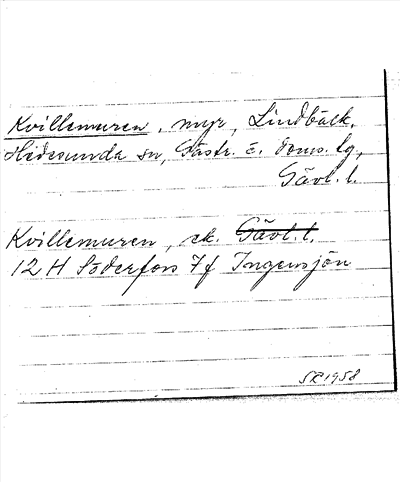 Kvillemuren, myr, Lindbäck,
Hedesunda sn, Gästr. ö. doms. tg,
Gävl. l.
Kvillemuren, ek. Gävl. l.
12 H Söderfors 7f Ingensjön
SR 1958